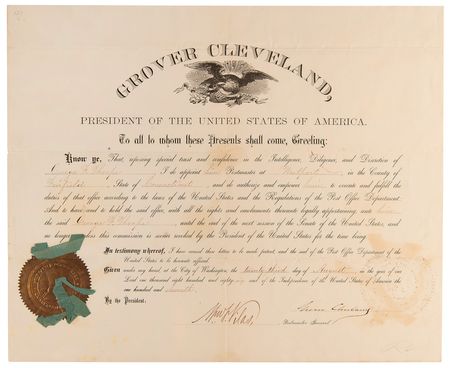 GROVER CLEVELAND,
PRESIDENT OF THE UNITED STATES OF AMERICA.
To all to whom these Presents shall come, Greeting:
Know ye, That, reposing special trust and confidence in the Intelligence, Diligence, and Discretion of
George I do appoint him Postmaster at in the County of
Fairfield State of Connecticut and do authorize and empower him to execute and fulfil the
duties of that office according to the laws of the United States and the Regulations of the Post Office Department.
And to have and to hold the said office, with all the rights and emoluments thereunto legally appertaining, unto him
the said George until the end of the next session of the Senate of the United States, and
no longer, unless this commission is sooner revoked by the President of the United States for the time being.
In testimony whereof, I have caused these letters to be made patent, and the seal of the Post Office Department of the
United States to be hereunto affixed.
Given under my hand at the City of Washington, the twenty third day of August in the year of our
Lord one thousand eight hundred and eighty and of the Independence of the United States of America the
one hundred and
By the President:
Wm F Vilas
Grover Cleveland
Postmaster General